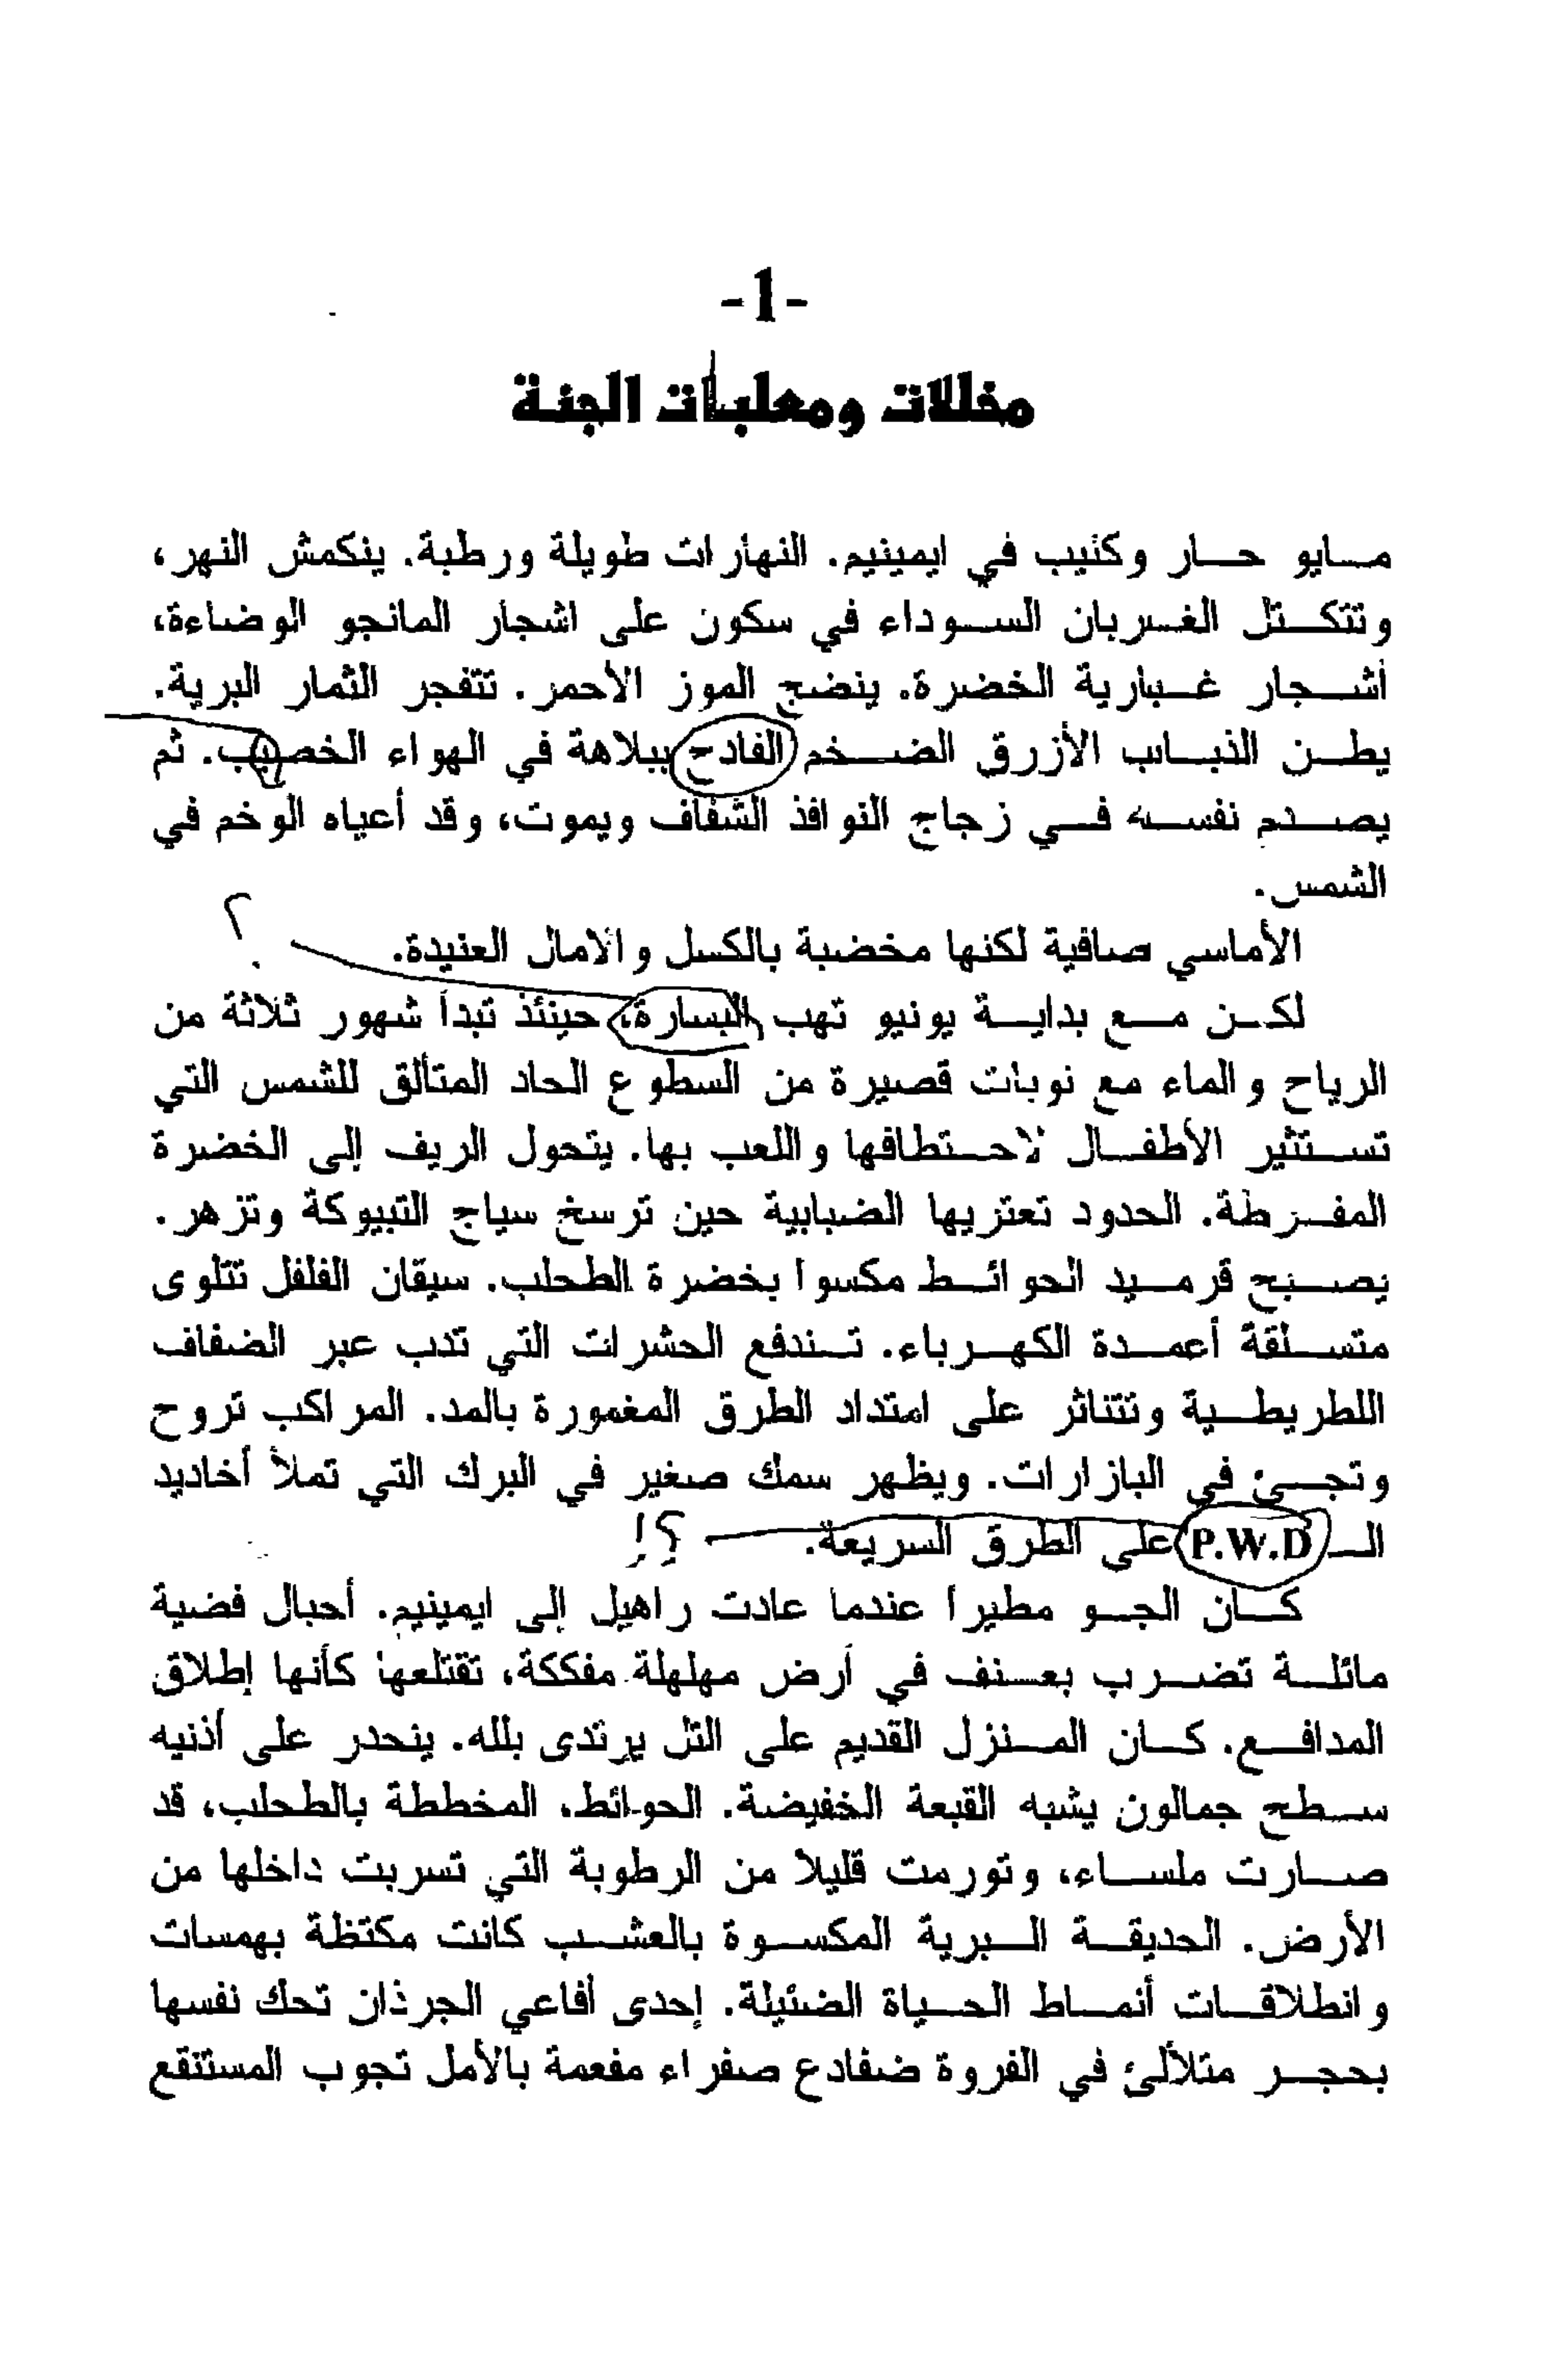 -1-
مخللات ومعلبات الجنة
مايو حار وكئيب في ايمينيم. النهارات طويلة ورطبة. ينكمش النهر،
وتتكتل الغربان السوداء في سكون على اشجار المانجو الوضاءة،
أشجار غبارية الخضرة. ينضج الموز الأحمر. تتفجر الثمار البرية.
يطن الذباب الأزرق الضخم الفادح ببلاهة في الهواء الخصيب. ثم
يصدم نفسه في زجاج النوافذ الشفاف ويموت، وقد أعياه الوخم في
الشمس.
؟
الأماسي صافية لكنها مخضبة بالكسل والامال العنيدة.
لكن مع بداية يونيو تهب البسارة، حينئذ تبدأ شهور ثلاثة من
الرياح والماء مع نوبات قصيرة من السطوع الحاد المتألق للشمس التي
تستثير الأطفال لاحتطافها واللعب بها. يتحول الريف إلى الخضرة
المفرطة. الحدود تعتريها الضبابية حين ترسخ سياج التبيوكة وتزهر.
يصبح قرميد الحوائط مكسوا بخضرة الطحلب. سيقان الفلفل تتلوى
متسلقة أعمدة الكهرباء. تندفع الحشرات التي تدب عبر الضفاف
اللطريطية وتتناثر على امتداد الطرق المغمورة بالمد. المراكب تروح
وتجئ في البازارات. ويظهر سمك صغير في البرك التي تملأ أخاديد
الـ P.W.D على الطرق السريعة. ؟!
كان الجو مطيرا عندما عادت راهيل إلى ايمينيم. أحبال فضية
مائلة تضرب بعنف في أرض مهلهلة مفككة، تقتلعها كأنها إطلاق
المدافع. كان المنزل القديم على التل يرتدى بلله. ينحدر على أذنيه
سطح جمالون يشبه القبعة الخفيضة. الحوائط، المخططة بالطحلب، قد
صارت ملساء، وتورمت قليلا من الرطوبة التي تسربت داخلها من
الأرض. الحديقة البرية المكسوة بالعشب كانت مكتظة بهمسات
وانطلاقات أنماط الحياة الضئيلة. إحدى أفاعي الجرذان تحك نفسها
بحجر متلألئ في الفروة ضفادع صفراء مفعمة بالأمل تجوب المستنقع